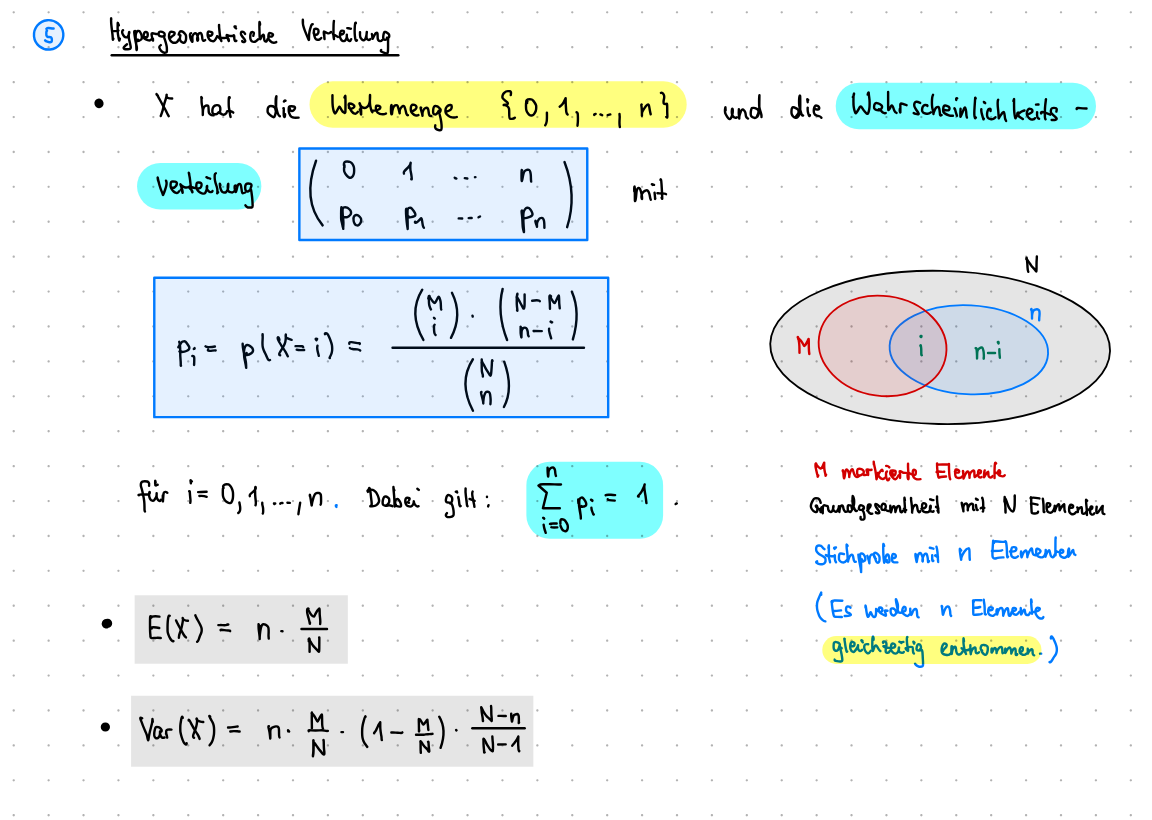 5 Hypergeometrische Verteilung
• X hat die Wertemenge {0, 1, ..., n} und die Wahrscheinlichkeits-
verteilung ( 0 1 ... n
p₀ p₁ ... pₙ ) mit
pᵢ = p(X=i) = (M über i) · (N-M über n-i) / (N über n)
N
n
M i n-i
für i = 0, 1, ..., n. Dabei gilt: ∑_{i=0}^{n} pᵢ = 1.
M markierte Elemente
Grundgesamtheit mit N Elementen
Stichprobe mit n Elementen
(Es werden n Elemente
gleichzeitig entnommen.)
• E(X) = n · M/N
• Var(X) = n · M/N · (1 - M/N) · (N-n)/(N-1)